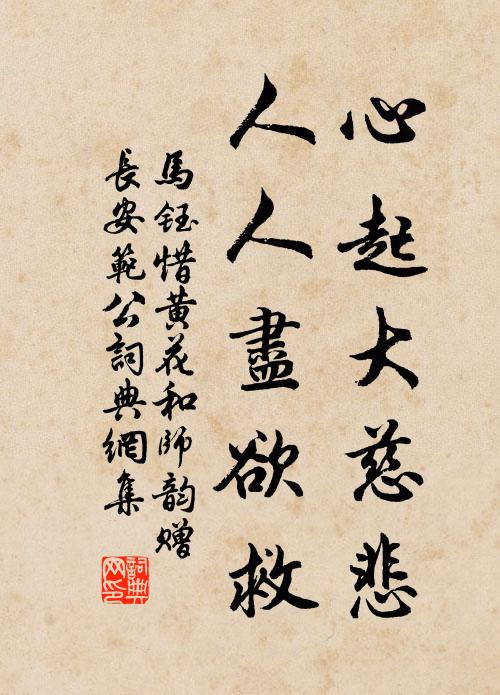 心起大慈悲
人人盡欲救
馬鈺惜黄花和師韵贈
長安範公詞典網集
詞典网印